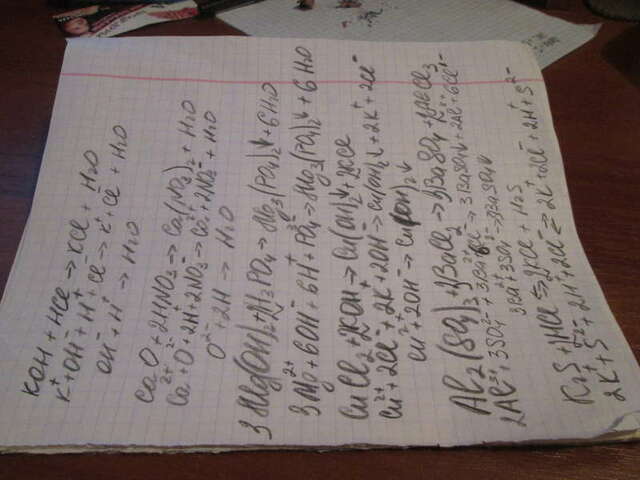 KOH + HCl → KCl + H₂O
K⁺ + OH⁻ + H⁺ + Cl⁻ → K⁺ + Cl + H₂O
OH⁻ + H⁺ → H₂O
CaO + 2HNO₃ → Ca(NO₃)₂ + H₂O
Ca²⁺ + O²⁻ + 2H⁺ + 2NO₃⁻ → Ca²⁺ + 2NO₃⁻ + H₂O
O²⁻ + 2H → H₂O
3Mg(OH)₂ + H₃PO₄ → Mg₃(PO₄)₂↓ + 6H₂O
3Mg²⁺ + 6OH⁻ + 6H⁺ + PO₄³⁻ → Mg₃(PO₄)₂↓ + 6H₂O
CuCl₂ + 2KOH → Cu(OH)₂↓ + 2KCl
Cu²⁺ + 2Cl⁻ + 2K⁺ + 2OH⁻ → Cu(OH)₂↓ + 2K⁺ + 2Cl⁻
Cu²⁺ + 2OH⁻ → Cu(OH)₂↓
Al₂(SO₄)₃ + 3BaCl₂ → 3BaSO₄ + 2AlCl₃
2Al³⁺ + 3SO₄²⁻ + 3Ba²⁺ → 3BaSO₄↓ + 2Al³⁺ + 6Cl⁻
3Ba²⁺ + 3SO₄²⁻ → 3BaSO₄↓
K₂S + 2HCl ⇆ 2KCl + H₂S
2K⁺ + S²⁻ + 2H⁺ + 2Cl⁻ ⇆ 2K⁺ + 2Cl⁻ + 2H⁺ + S²⁻